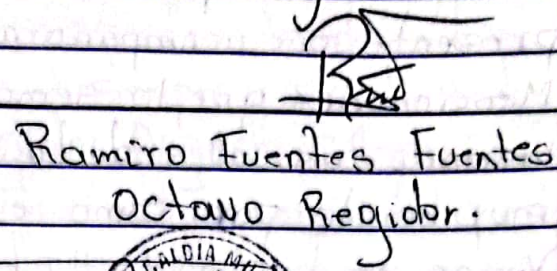 Ramiro Fuentes Fuentes
Octavo Regidor.
ALDIA MU